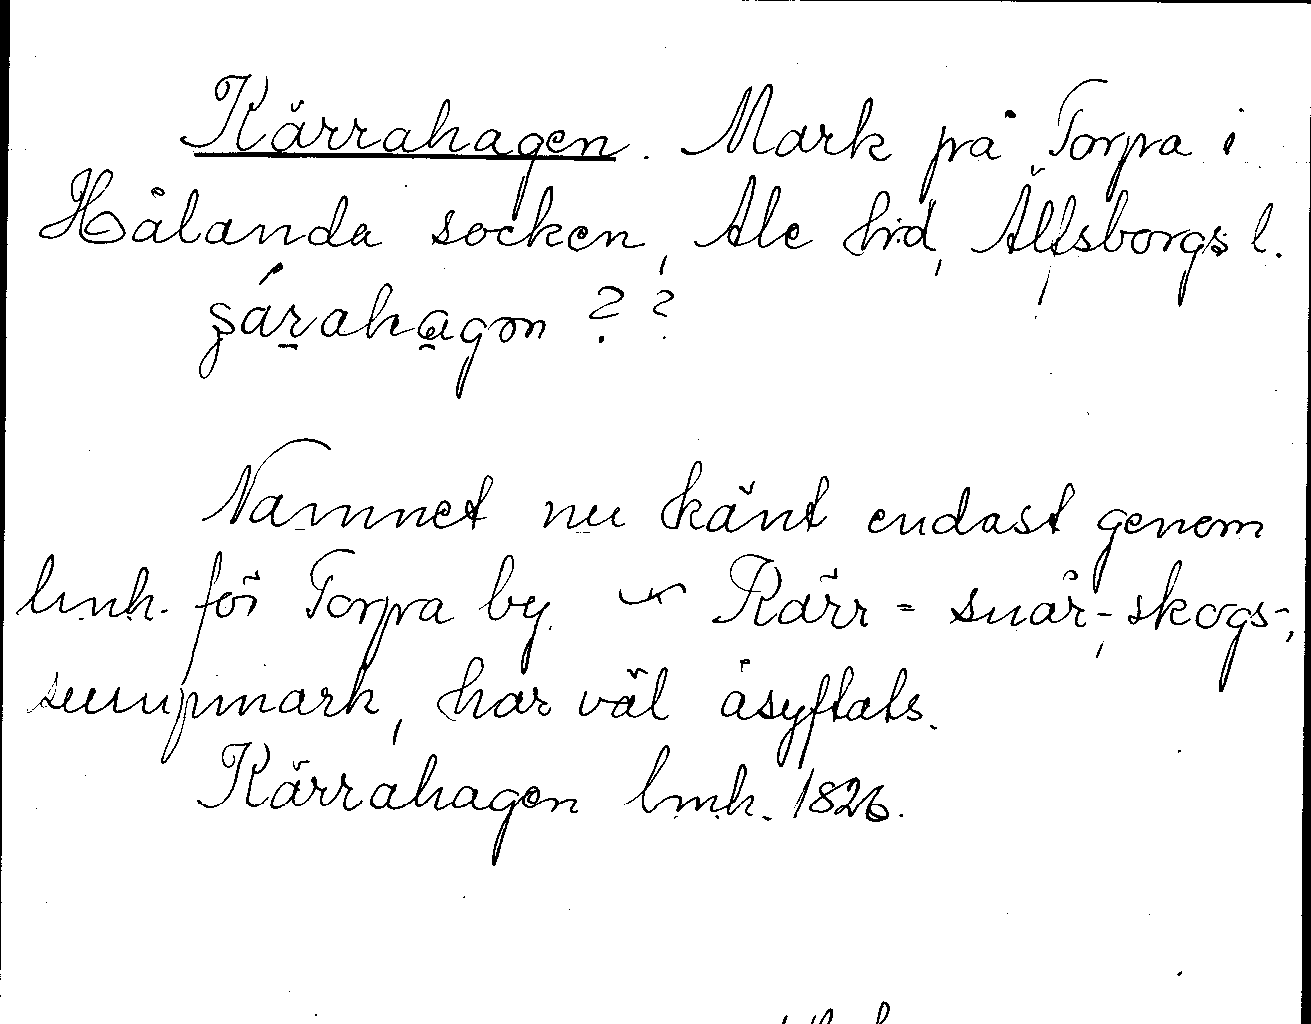 Kärrahagen. Mark på Torpa i
Hålanda socken, Ale hrd, Älfsborgs l.
şárahagən ? ?
Namnet nu känt endast genom
lmk. för Torpa by. Kärr = snår-, skogs-,
sumpmark, har väl åsyftats.
Kärrahagen lmk. 1826.